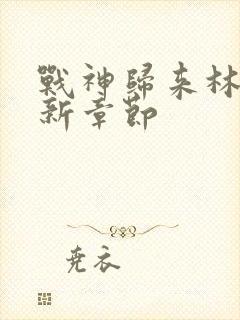 戰神歸來林
新章節
堯衣